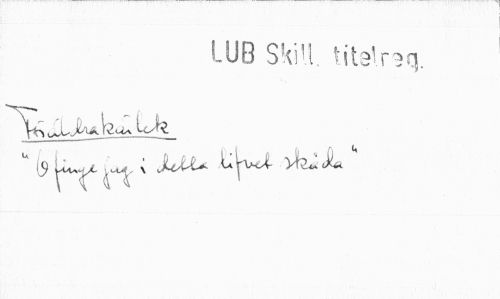 LUB Skill. titelreg.
Föräldrakärlek
"O finge jag i detta lifvet skåda"